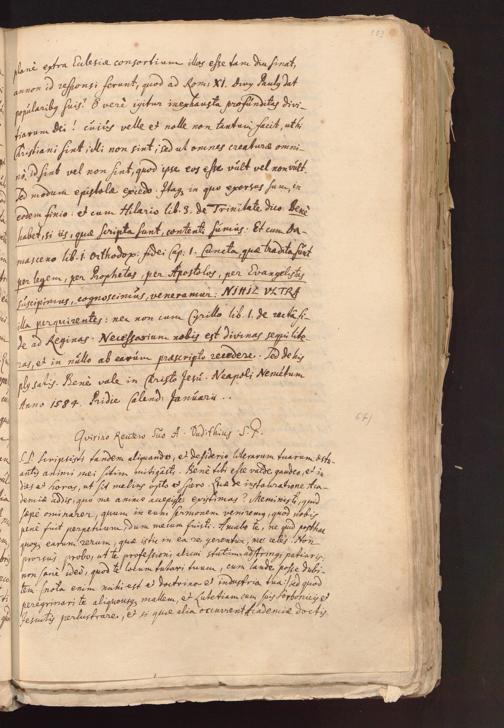 planè extra Ecclesiæ consortium illos esse tam diu sinat,
annon id responsi ferunt, quod ad Rom: XI. Divus Paulus dat
popularibus suis? O verè igitur inexhausta profunditas divi-
tiarum Dei! cuius velle et nolle non tantum facit, uti
Christiani sint, illi non sint, sed ut omnes creaturæ omni-
nò, id sint vel non sint, quod ipse eos esse vult vel non vult.
Sed modum epistolæ excedo. Itaq, in quo exorsus sum, in
eodem finio: et cum Hilario lib. 3. de Trinitate dico. Benè
habet, si iis, quæ scripta sunt, contenti simus. Et cum Da-
masceno lib. 1 Orthodox: fidei Cap. 1. Cuncta, quæ tradita sunt
per legem, per Prophetas, per Apostolos, per Evangelistas
suscipimus, cognoscimus, veneramur: NIHIL VLTRA
illa perquirentes: nec non cum Cyrillo lib. 1. de recta fi-
de ad Reginas. Necessarium nobis est divinas sequi lite-
ras, et in nullo ab earum præscripto recedere. Sed de his
plus satis. Benè vale in Christo Jesu. Neapoli Nemetum
Anno 1584. Pridie Calend: Januarii ..
Quirino Reutero suo A. Dudithius S. P.
scripsisti tandem aliquando, et desiderio literarum tuarum æstu-
antis animi mei sitim mitigasti. Benè tibi esse valde gaudeo, et in
dies et horas, ut sit melius opto et spero. Quid de instauratione Aca-
demiæ addis, quo me animo accepisse existimas? Meministi, quid
sæpè ominarer, quum in eum sermonem venirem, quod nobis
penè fuit perpetuum, dum mecum fuisti. Amabo te, ne quid posthac
quoq, earum rerum, quæ istic in ea re gerentur, me celes. Non
prorsus probo, ut te professioni alicui statim adstringi patiaris
non sanè ideo, quod te locum tutari tuum, cum laude posse dubi-
tem (nota enim mihi est et doctrina et industria tua) sed quod
peregrinari te aliquousq, mallem, et Lutetiam cum suis Sorbonicis et
Jesuitis perlustrare, et si quæ alia occurrent Academiæ doctis